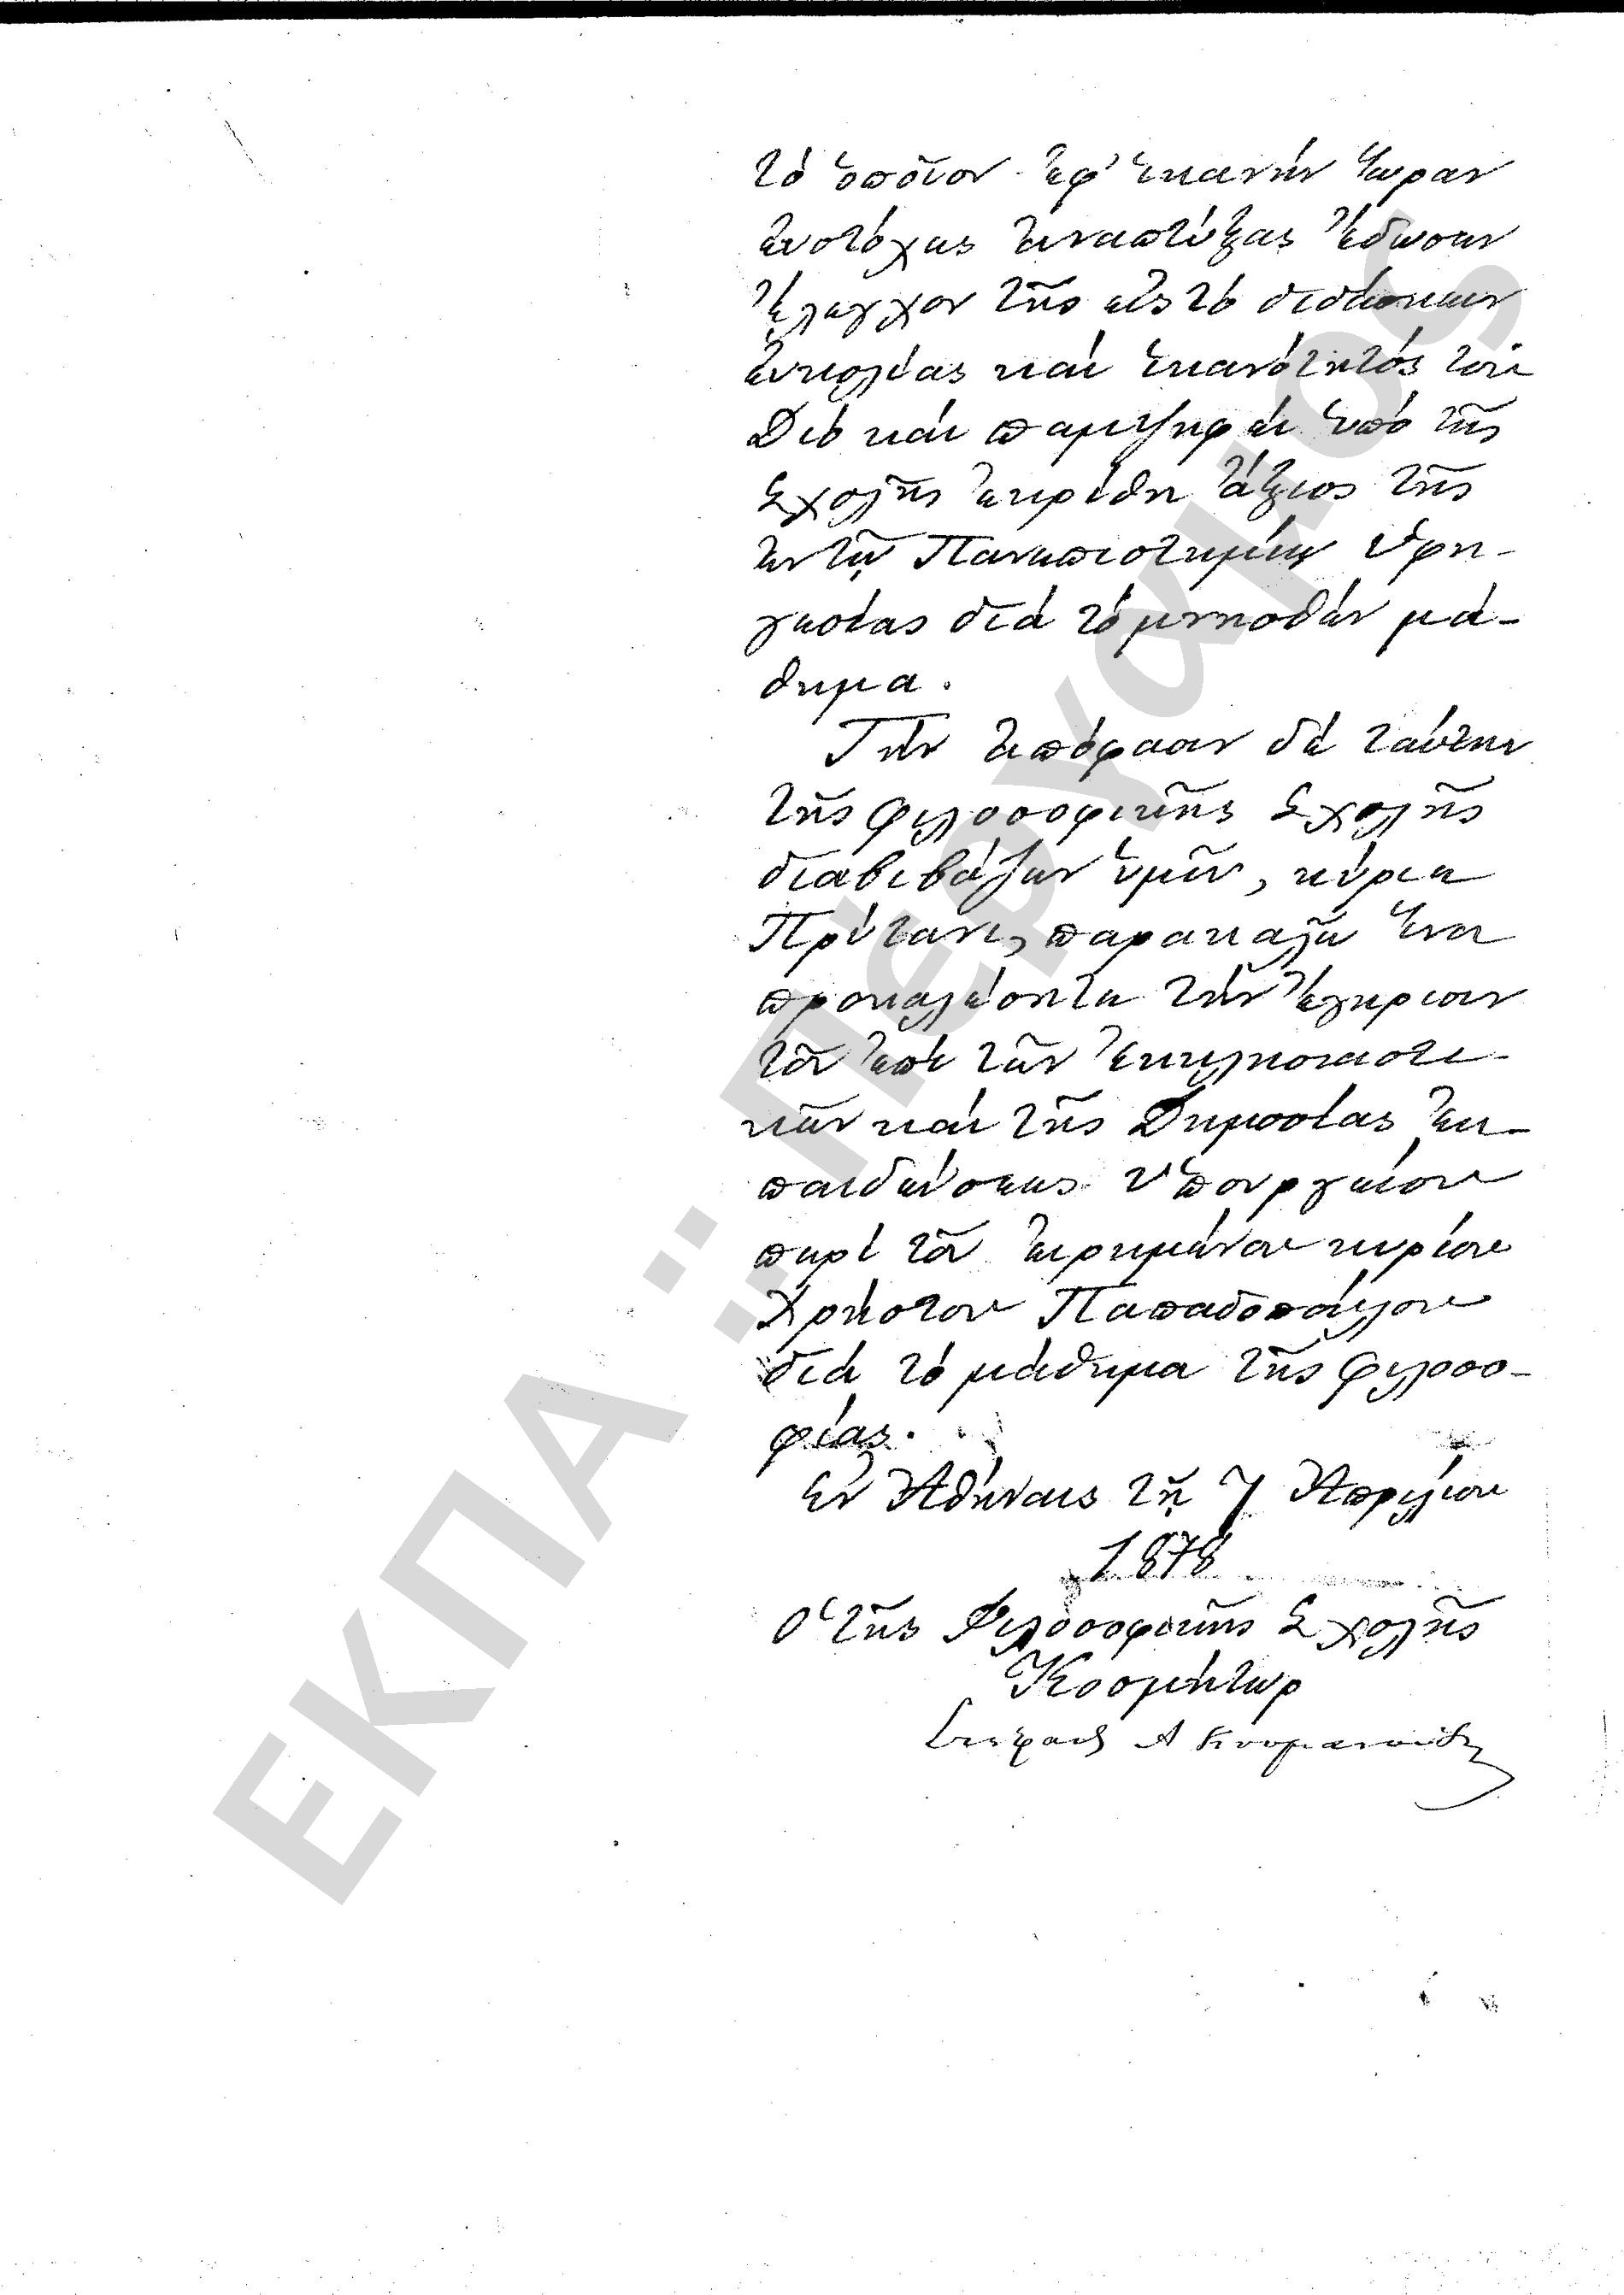 τὸ ὁποῖον ἐφ' ἱκανὴν ὥραν
εὐστόχως ἀναπτύξας ἔδωκεν
ἔλεγχον τῆς εἰς τὸ διδάσκειν
εὐκολίας καὶ ἱκανότητός του
Διὸ καὶ παμψηφεὶ ὑπὸ τῆς
Σχολῆς ἐκρίθη ἄξιος τῆς
ἐν τῷ Πανεπιστημίῳ ὑφη-
γεσίας διὰ τὸ μνησθὲν μά-
θημα.
Τὴν ἀπόφασιν δὲ ταύτην
τῆς φιλοσοφικῆς Σχολῆς
διαβιβάζων ὑμῖν, κύριε
Πρύτανι, παρακαλῶ ἵνα
προκαλέσητε τὴν ἔγκρισιν
τοῦ ἐπὶ τῶν Ἐκκλησιαστι-
κῶν καὶ τῆς Δημοσίας Ἐκ-
παιδεύσεως Ὑπουργείου
περὶ τοῦ εἰρημένου κυρίου
Χρήστου Παπαδοπούλου
διὰ τὸ μάθημα τῆς φιλοσο-
φίας.
Ἐν Ἀθήναις τῇ 7 Ἀπριλίου
1878
Ὁ τῆς Φιλοσοφικῆς Σχολῆς
Κοσμήτωρ
Στέφανος Α Κουμανούδης
ΕΚΠΑ : Πέργαμος